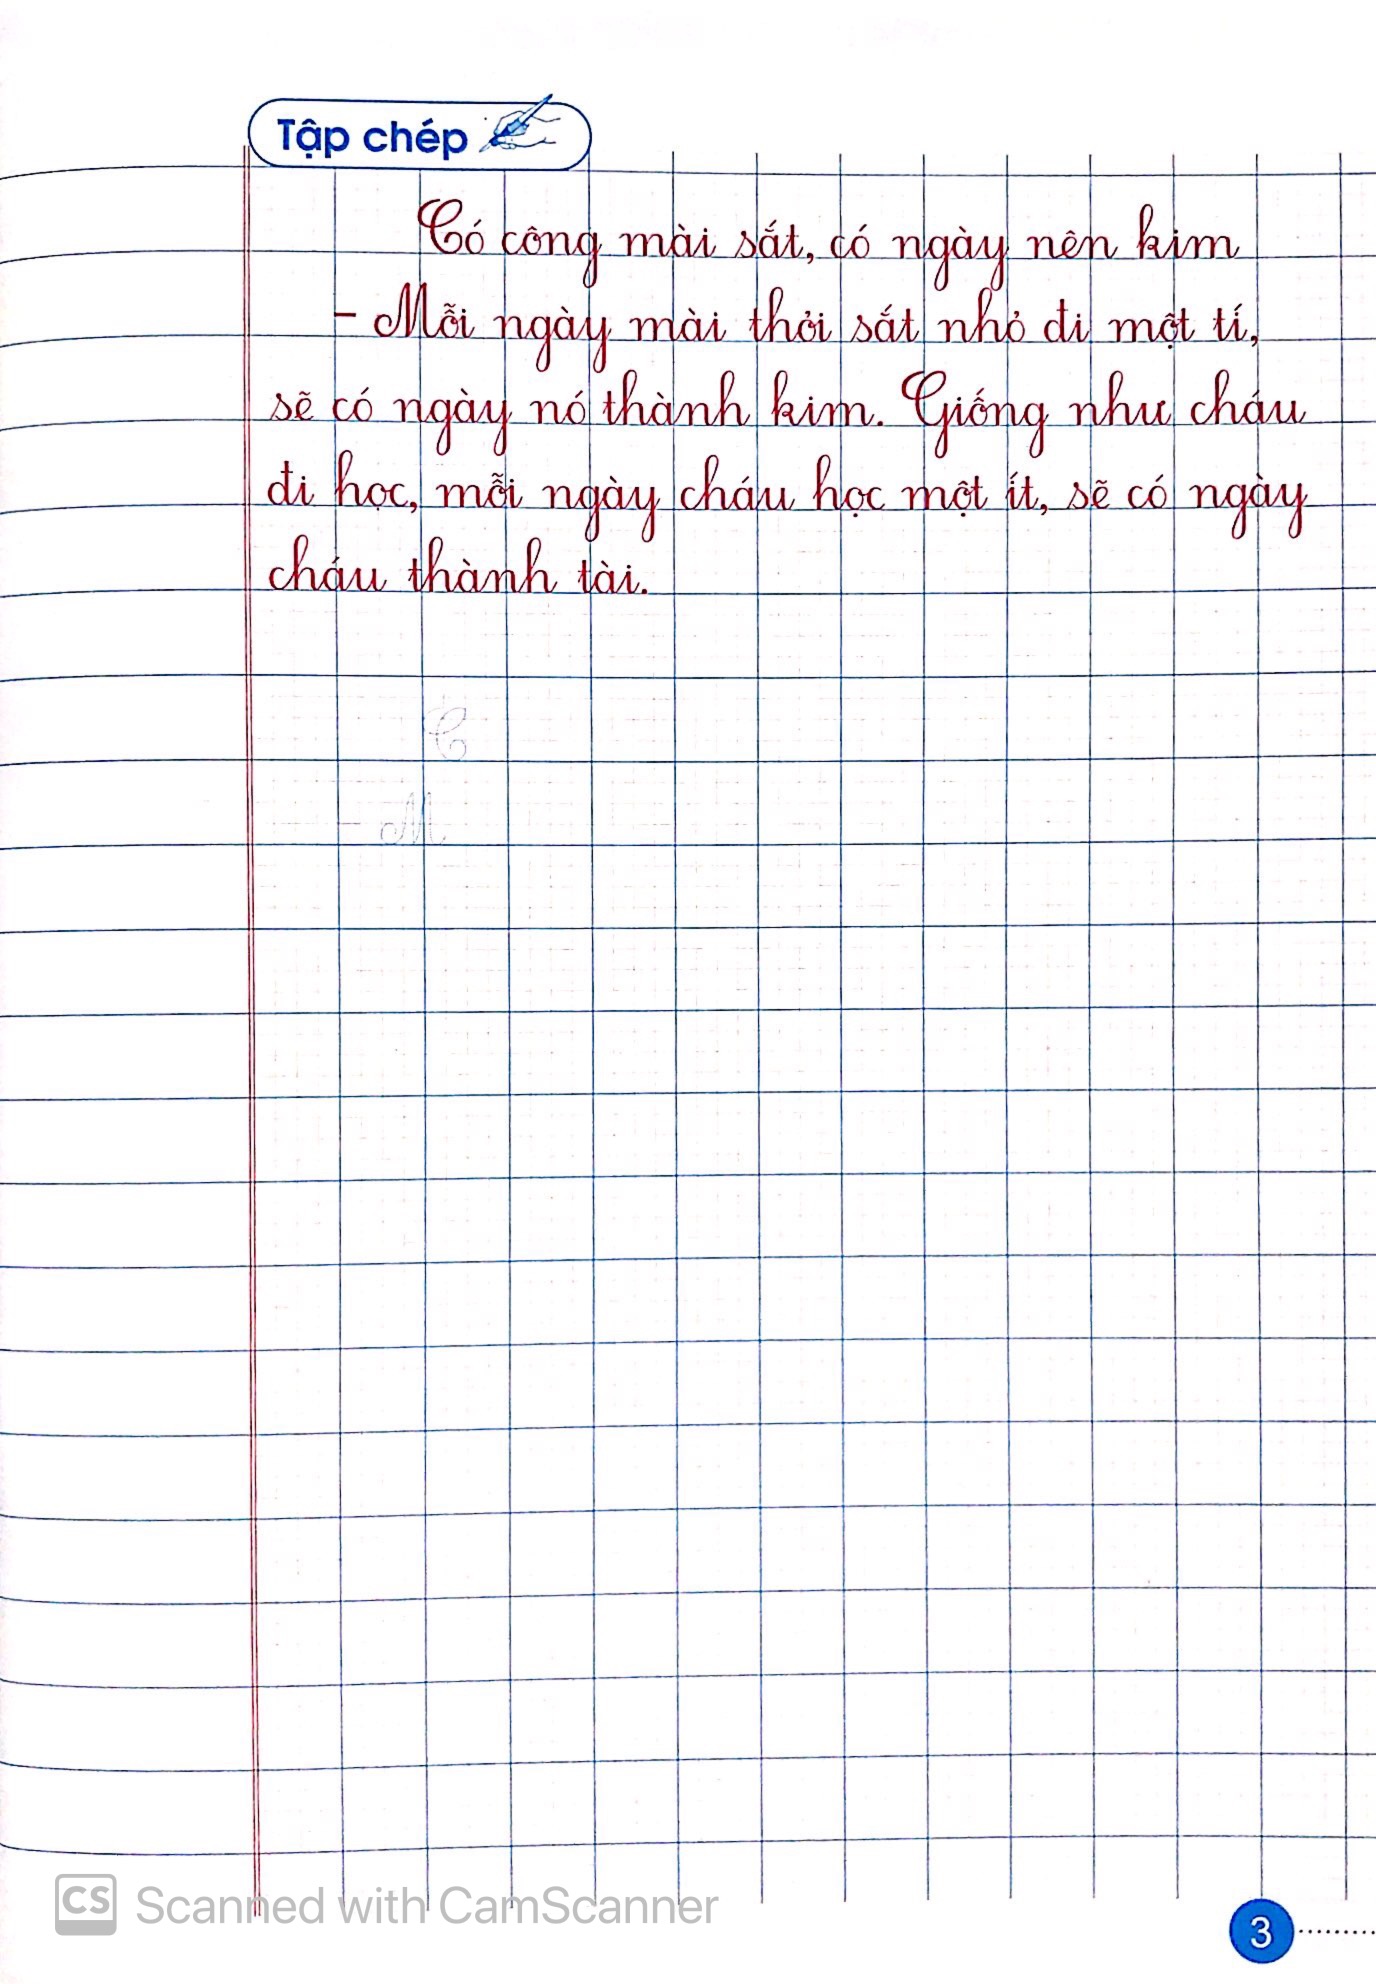 Tập chép
Có công mài sắt, có ngày nên kim
- Mỗi ngày mài thỏi sắt nhỏ đi một tí,
sẽ có ngày nó thành kim. Giống như cháu
đi học, mỗi ngày cháu học một ít, sẽ có ngày
cháu thành tài.
C
- M
CS Scanned with CamScanner
3